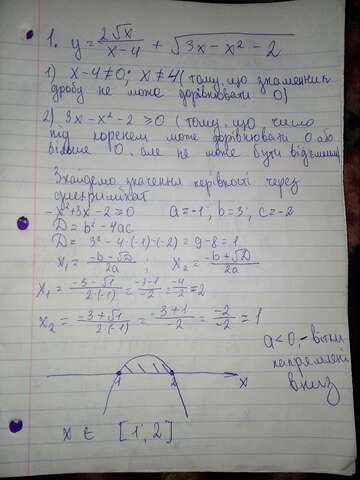 1. y = 2√x / x-4 + √3x - x² - 2
1) x-4≠0; x≠4 (тому, що знаменник
дробу не може дорівнювати 0)
2) 3x - x² - 2 ≥ 0 (тому, що число
під коренем може дорівнювати 0 або
більше 0, але не може бути відʼємним)
Знайдемо значення нерівності через
дискримінант
-x²+3x-2≥0 a=-1; b=3; c=-2
D = b² - 4ac
D = 3² - 4·(-1)·(-2) = 9-8 = 1
x₁ = -b-√D / 2a ; x₂ = -b+√D / 2a
x₁ = -3-√1 / 2·(-1) = -3-1 / -2 = -4 / -2 = 2
x₂ = -3+√1 / 2·(-1) = -3+1 / -2 = -2 / -2 = 1
a<0, - вітки
напрямлені
вниз
1 2 x
x ∈ [1; 2]